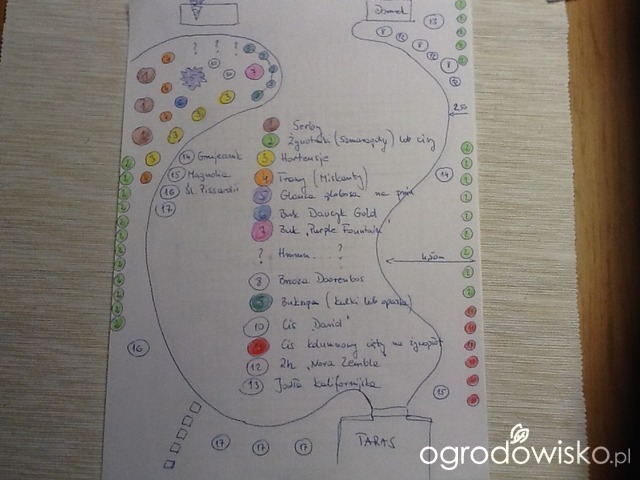 Domek
? ? ?
14 Gmujecznik
15 Magnolia
16 Śl. Pissardii
17
1 Serby
2 Żywotniki (Szmaragdy) lub cisy
3 Hortensje
4 Trawy (Miskanty)
5 Glauca globosa na pniu
6 Buk Dawyck Gold
7 Buk "Purple Fountain"
? Hmmm... ?
8 Brzoza Doorenbos
9 Bukszpan (kulki lub oparka)
10 Cis "David"
11 Cis kolumnowy
12 Rh. "Nova Zembla"
13 Jodła kalifornijska
2,50
4,50m
13
14
15
16
17 17 17
TARAS
ogrodowisko.pl